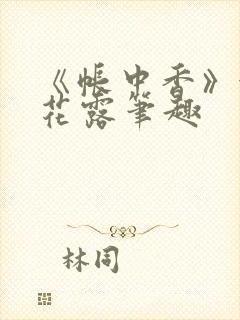 《帐中香》
花露笔趣
林同